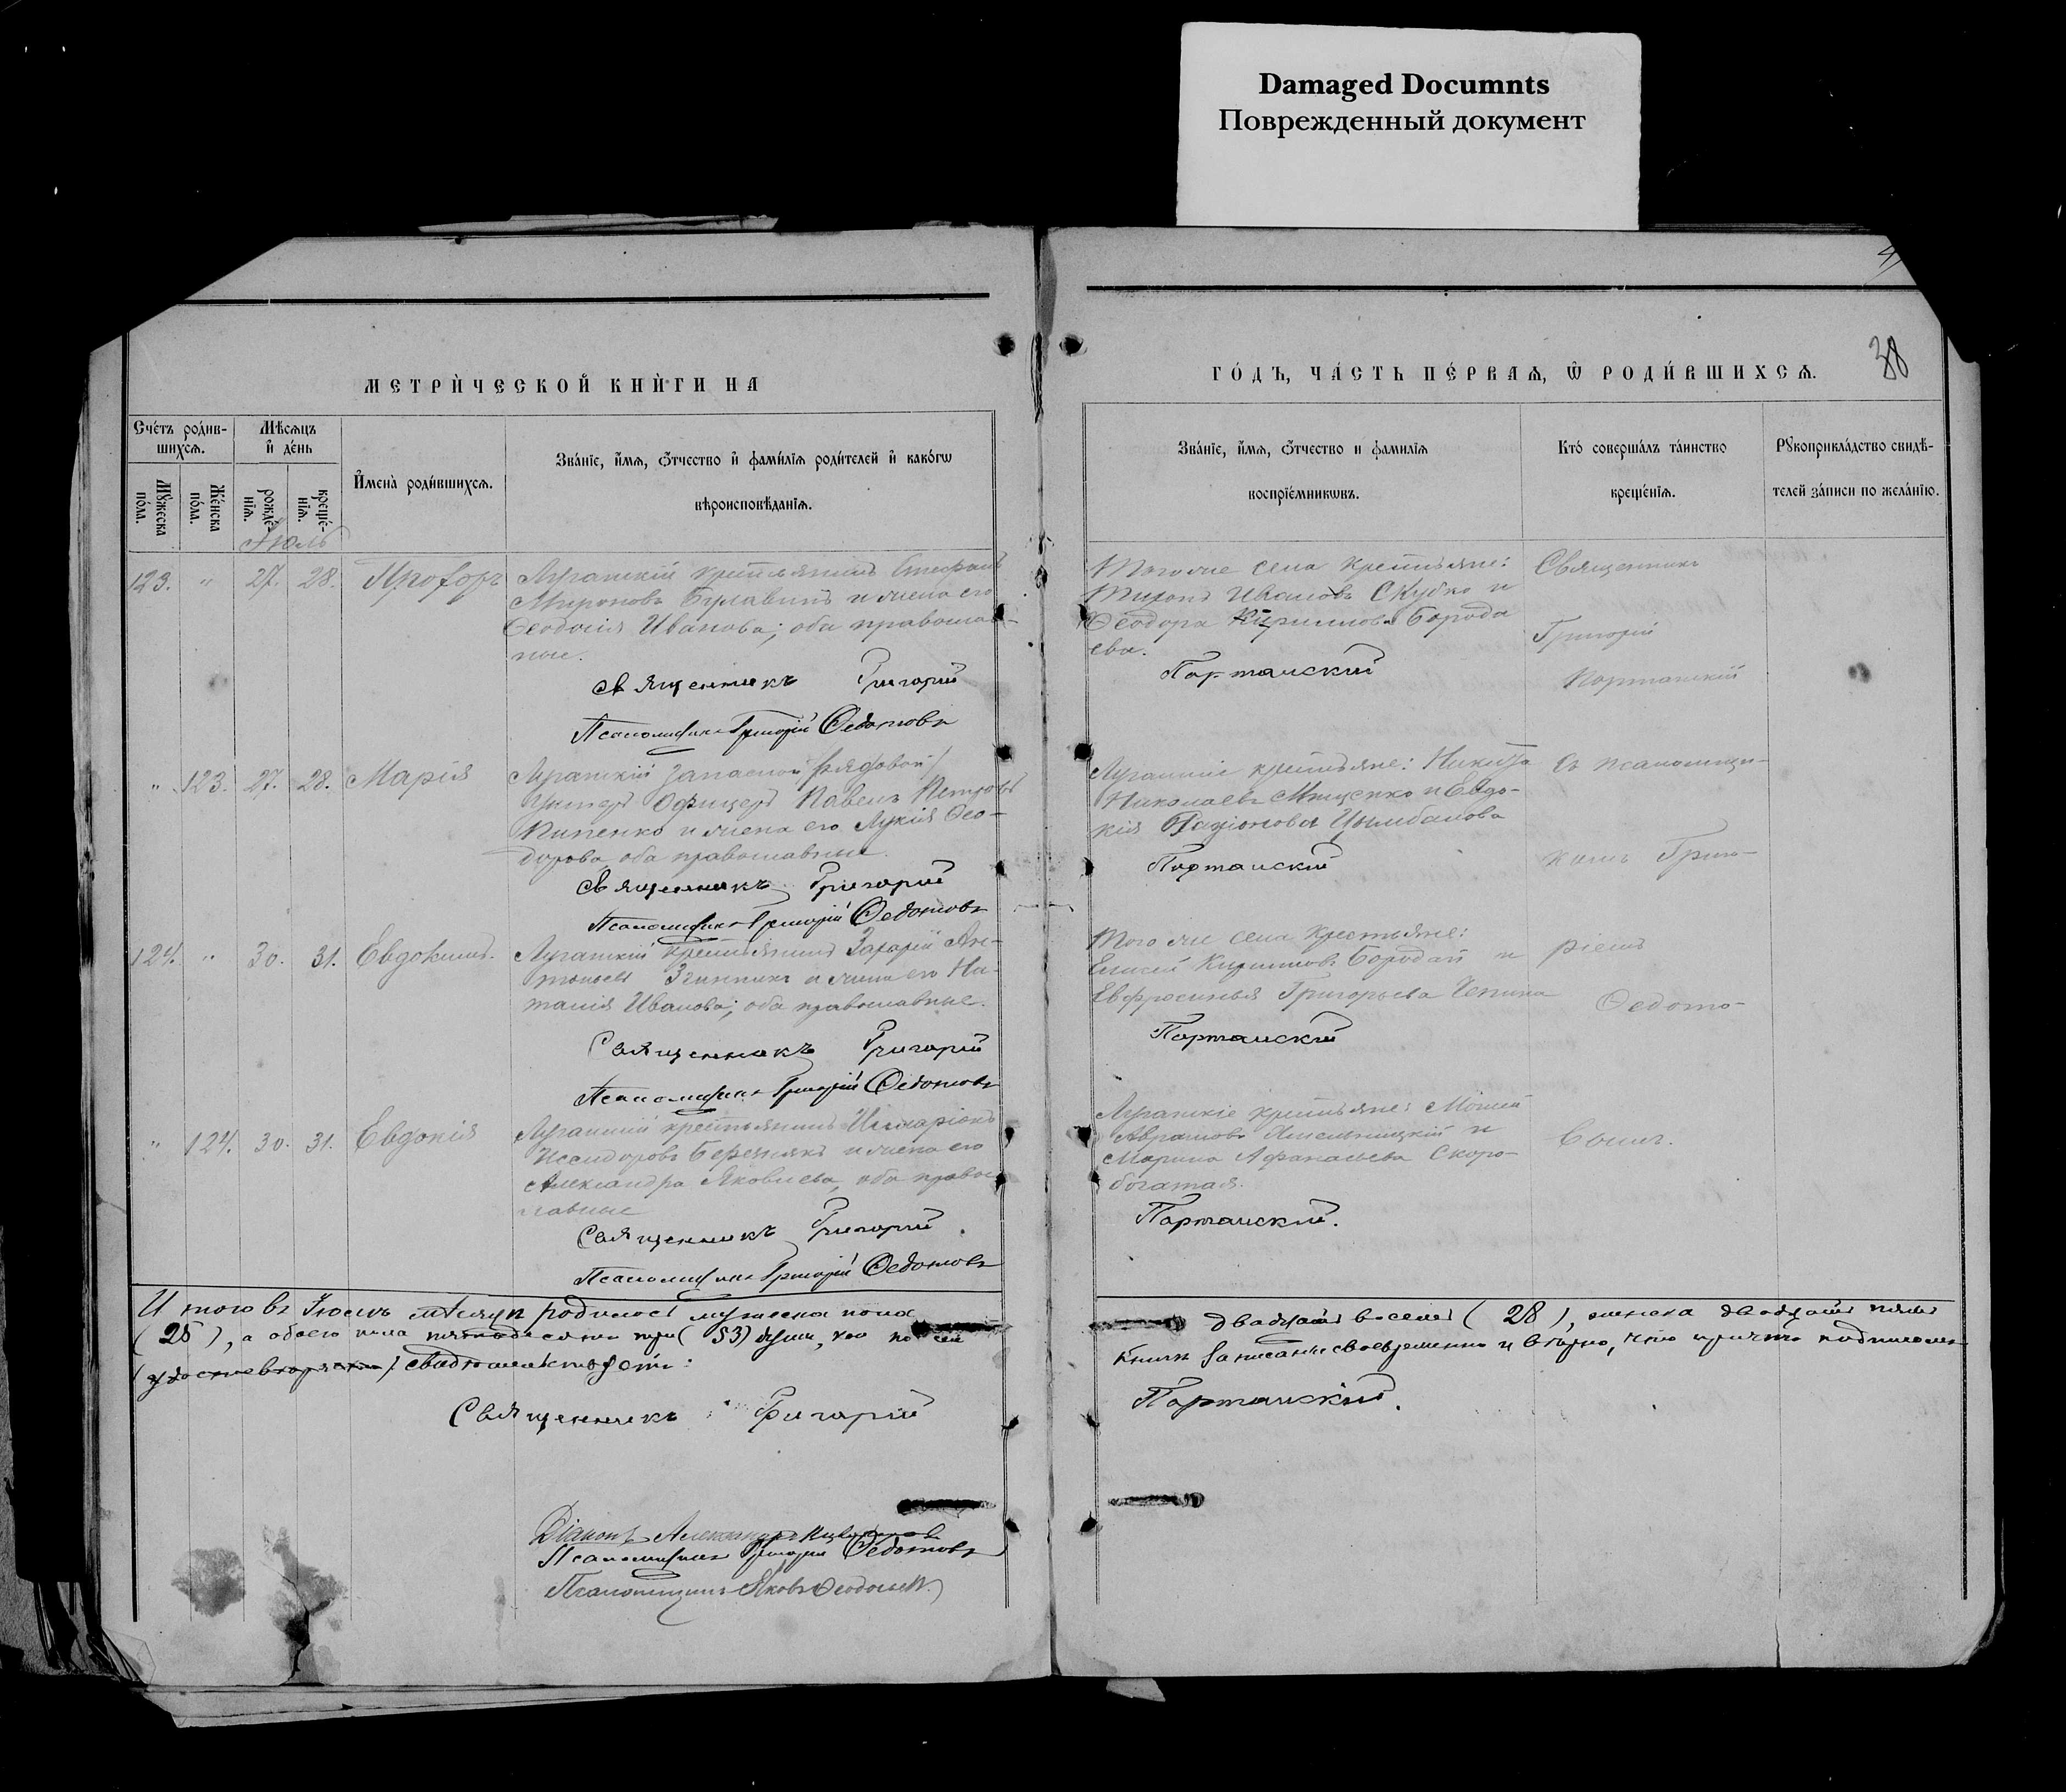 Damaged Documnts
Поврежденный документ
38
МЕТРИ́ЧЕСКОЙ КНИ́ГИ НА
ГО́ДЪ, ЧА́СТЬ ПЕ́РВАѦ, Ѿ РОДИ́ВШИХСѦ.
Сче́тъ роди́в-
шихсѧ.
Мѣ́сѧцъ
и҆ де́нь
Мꙋ́жеска
по́ла.
Же́нска
по́ла.
рожде́-
нїѧ.
креще́-
нїѧ.
И҆мена̀ роди́вшихсѧ.
Зва́нїе, и҆́мѧ, ѻ҆́тчество и҆ фамилїѧ роди́телей и҆ како́гѡ
вѣроисповѣ́данїѧ.
Зва́нїе, и҆́мѧ, ѻ҆́тчество и фамилїѧ
воспрїе́мникѡвъ.
Кто̀ соверша́лъ та́инство
креще́нїѧ.
Рꙋкоприкла́дство свидѣ́-
телей за́писи по жела́нїю.
Іюль
123. " 27. 28. Прохоръ
Луганскій крестьянинъ Стефанъ
Мироновъ Булавинъ и жена его
Ѳеодосія Иванова; оба православ-
ные.
Священникъ Григорій
Псаломщикъ Григорій Ѳедотовъ
Тогоже села крестьяне:
Тихонъ Ивановъ Скубко и
Ѳеодора Кириллова Борода
ева.
Портанскій
Священникъ
Григорій
Портанскій
" 123. 27. 28. Марія
Луганскій запасной рядовой
Унтеръ Офицеръ Павелъ Петровъ
и жена его Лукія Ѳео-
дорова, оба православные.
Священникъ Григорій
Псаломщикъ Григорій Ѳедотовъ
Луганскіе крестьяне: Никита
Николаевъ Мищенко и Евдо-
кія Родіонова Цымбалова
Портанскій
съ псаломщи-
комъ Григо-
124. " 30. 31. Евдокимъ.
Луганскій крестьянинъ Захарій Ан-
тоньевъ и жена его На-
талія Иванова; оба православные.
Священникъ Григорій
Псаломщикъ Григорій Ѳедотовъ
Того же села крестьяне:
Елисей Кирилловъ Бородай и
Евфросинья Григорьева
Портанскій
ріемъ
Ѳедото-
" 124. 30. 31. Евдокія
Луганскій крестьянинъ Иларіонъ
Исидоровъ и жена его
Александра Яковлева, оба право-
славные
Священникъ Григорій
Псаломщикъ Григорій Ѳедотовъ
Луганскіе крестьяне: Моисей
Аврамовъ и
Марина Афанасьева Скоро-
богатая.
Портанскій.
вымъ.
Итого въ Іюлѣ мѣсяцѣ родилось мужеска пола двадцать восемь (28), женска двадцать пять
(25), а обоего пола пятьдесятъ три (53) души, что по сей книгѣ записано своевременно и вѣрно, что причтъ подписомъ
свидѣтельствуетъ:
Священникъ Григорій Портанскій.
Діаконъ Александръ
Псаломщикъ Григорій Ѳедотовъ
Псаломщикъ Яковъ